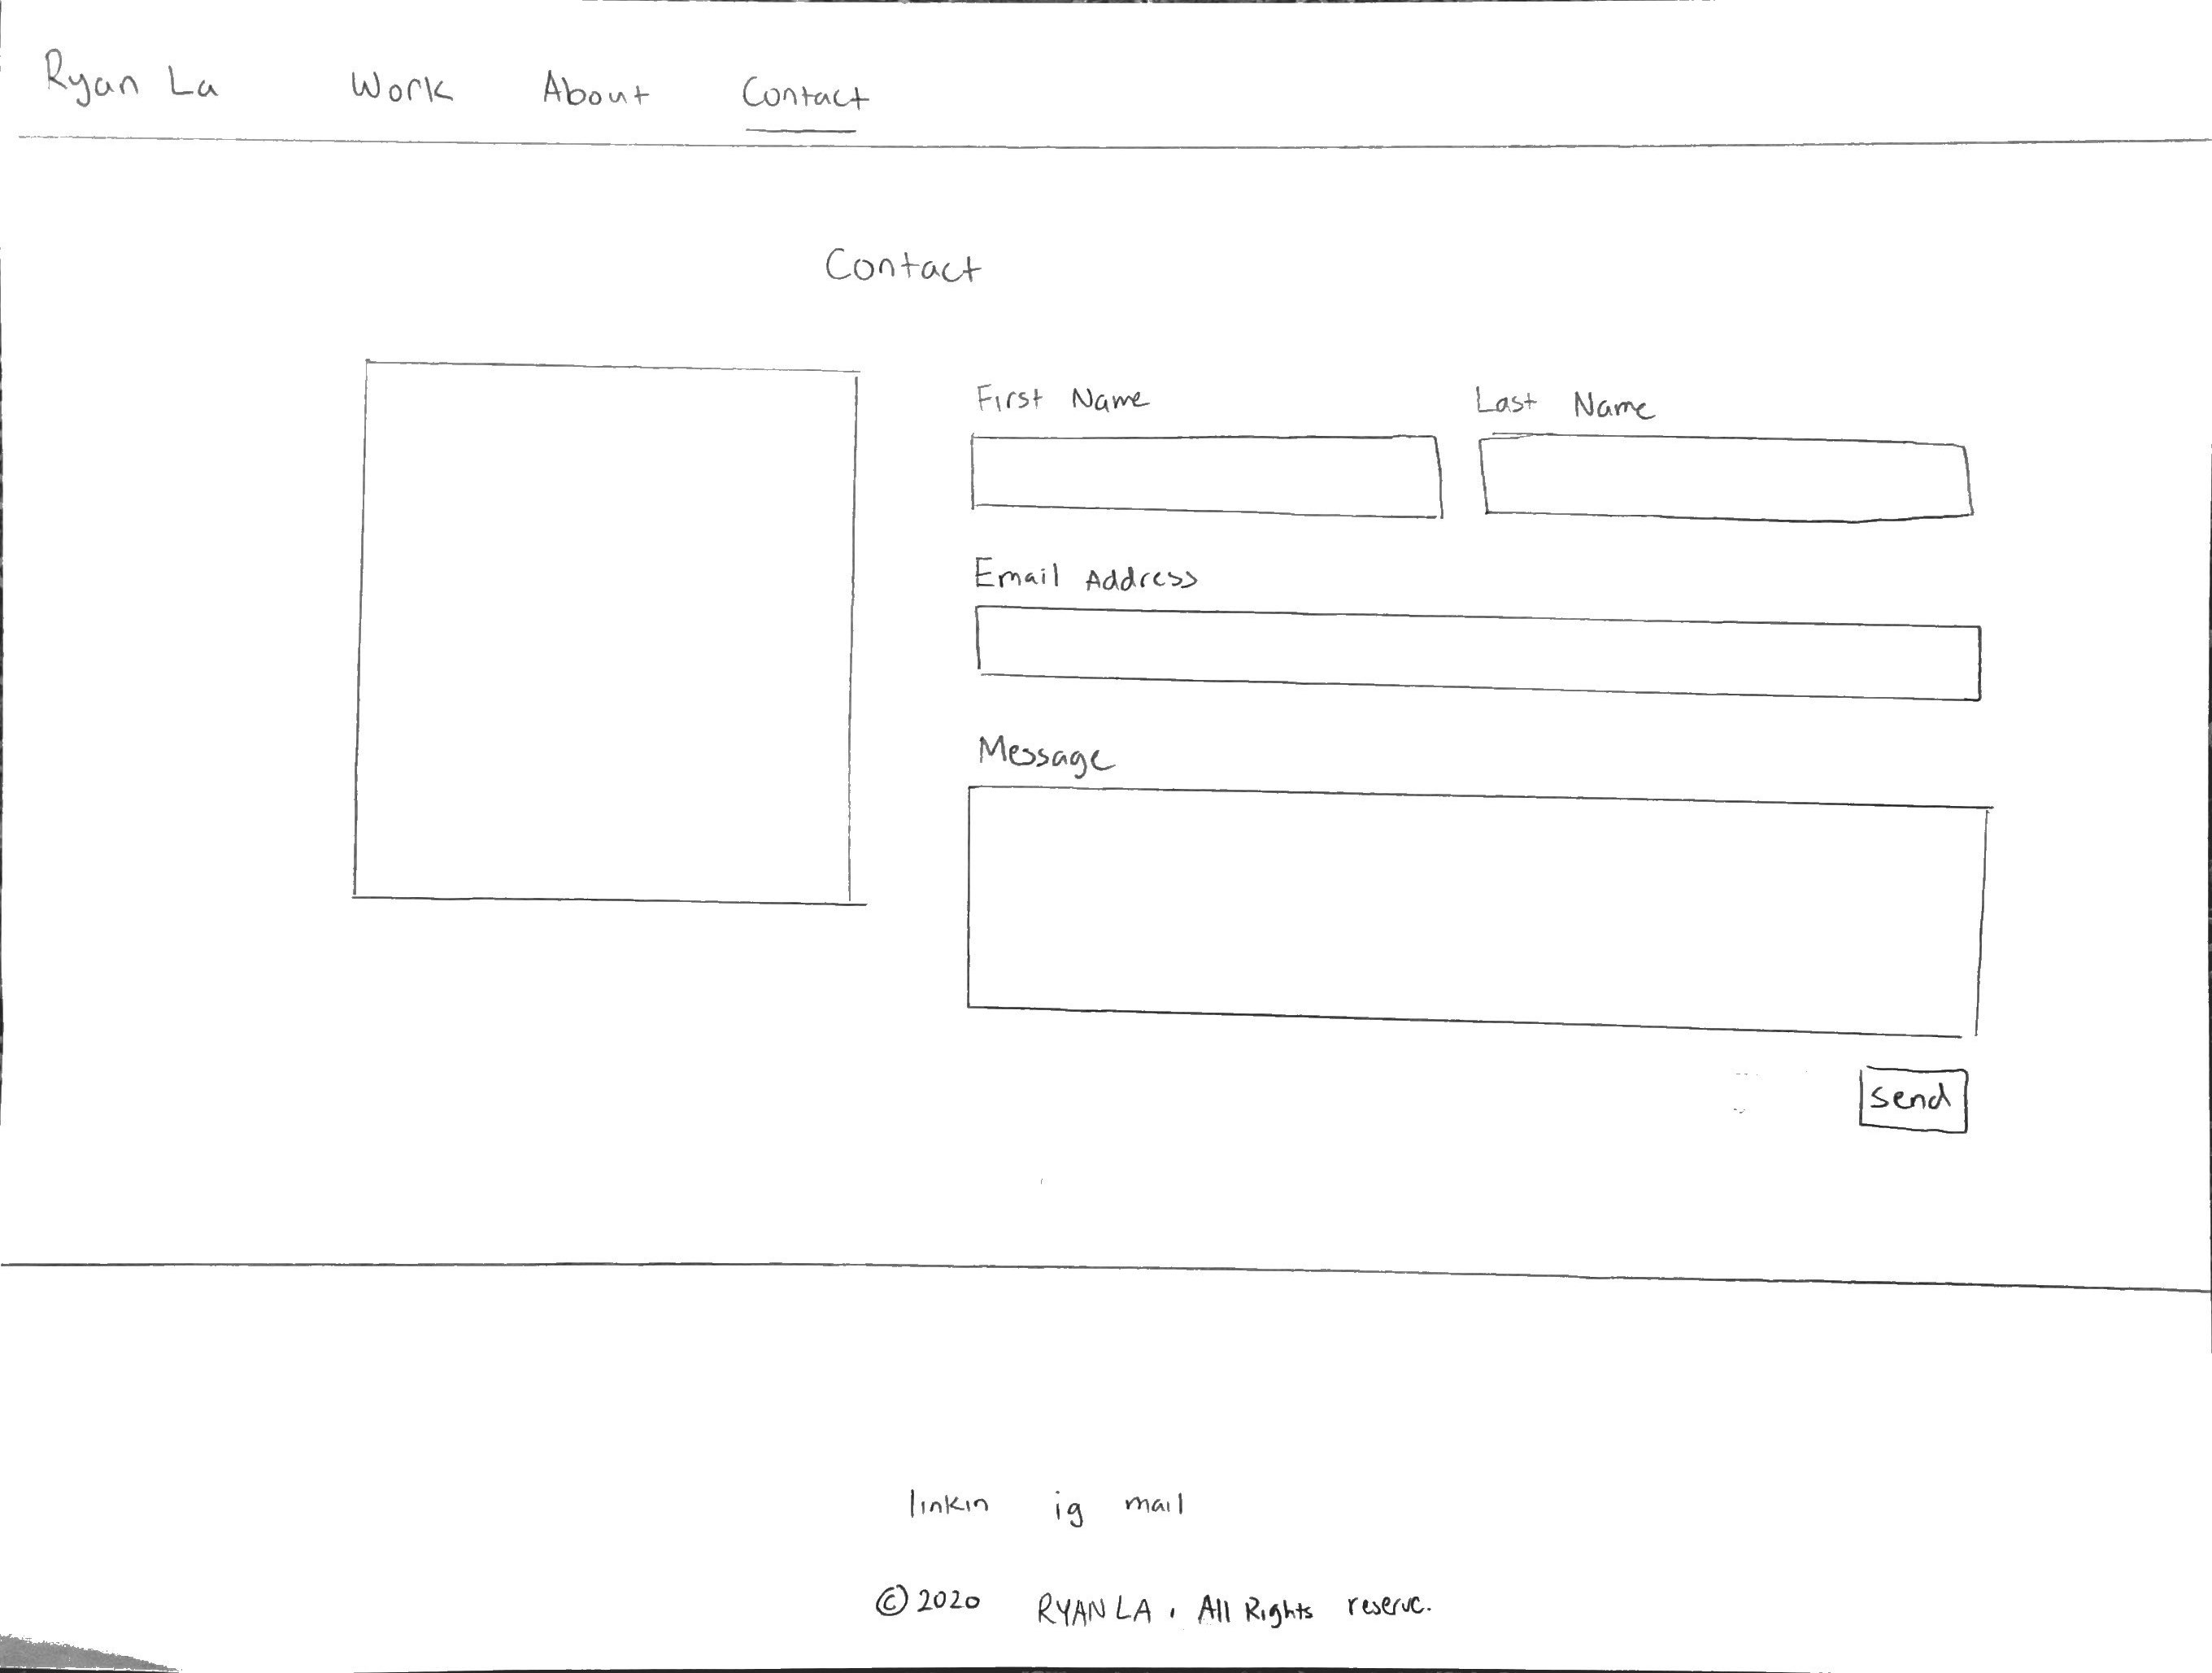 Ryan La Work About Contact
Contact
First Name Last Name
Email Address
Message
send
linkin ig mail
© 2020 RYAN LA . All Rights reserve.